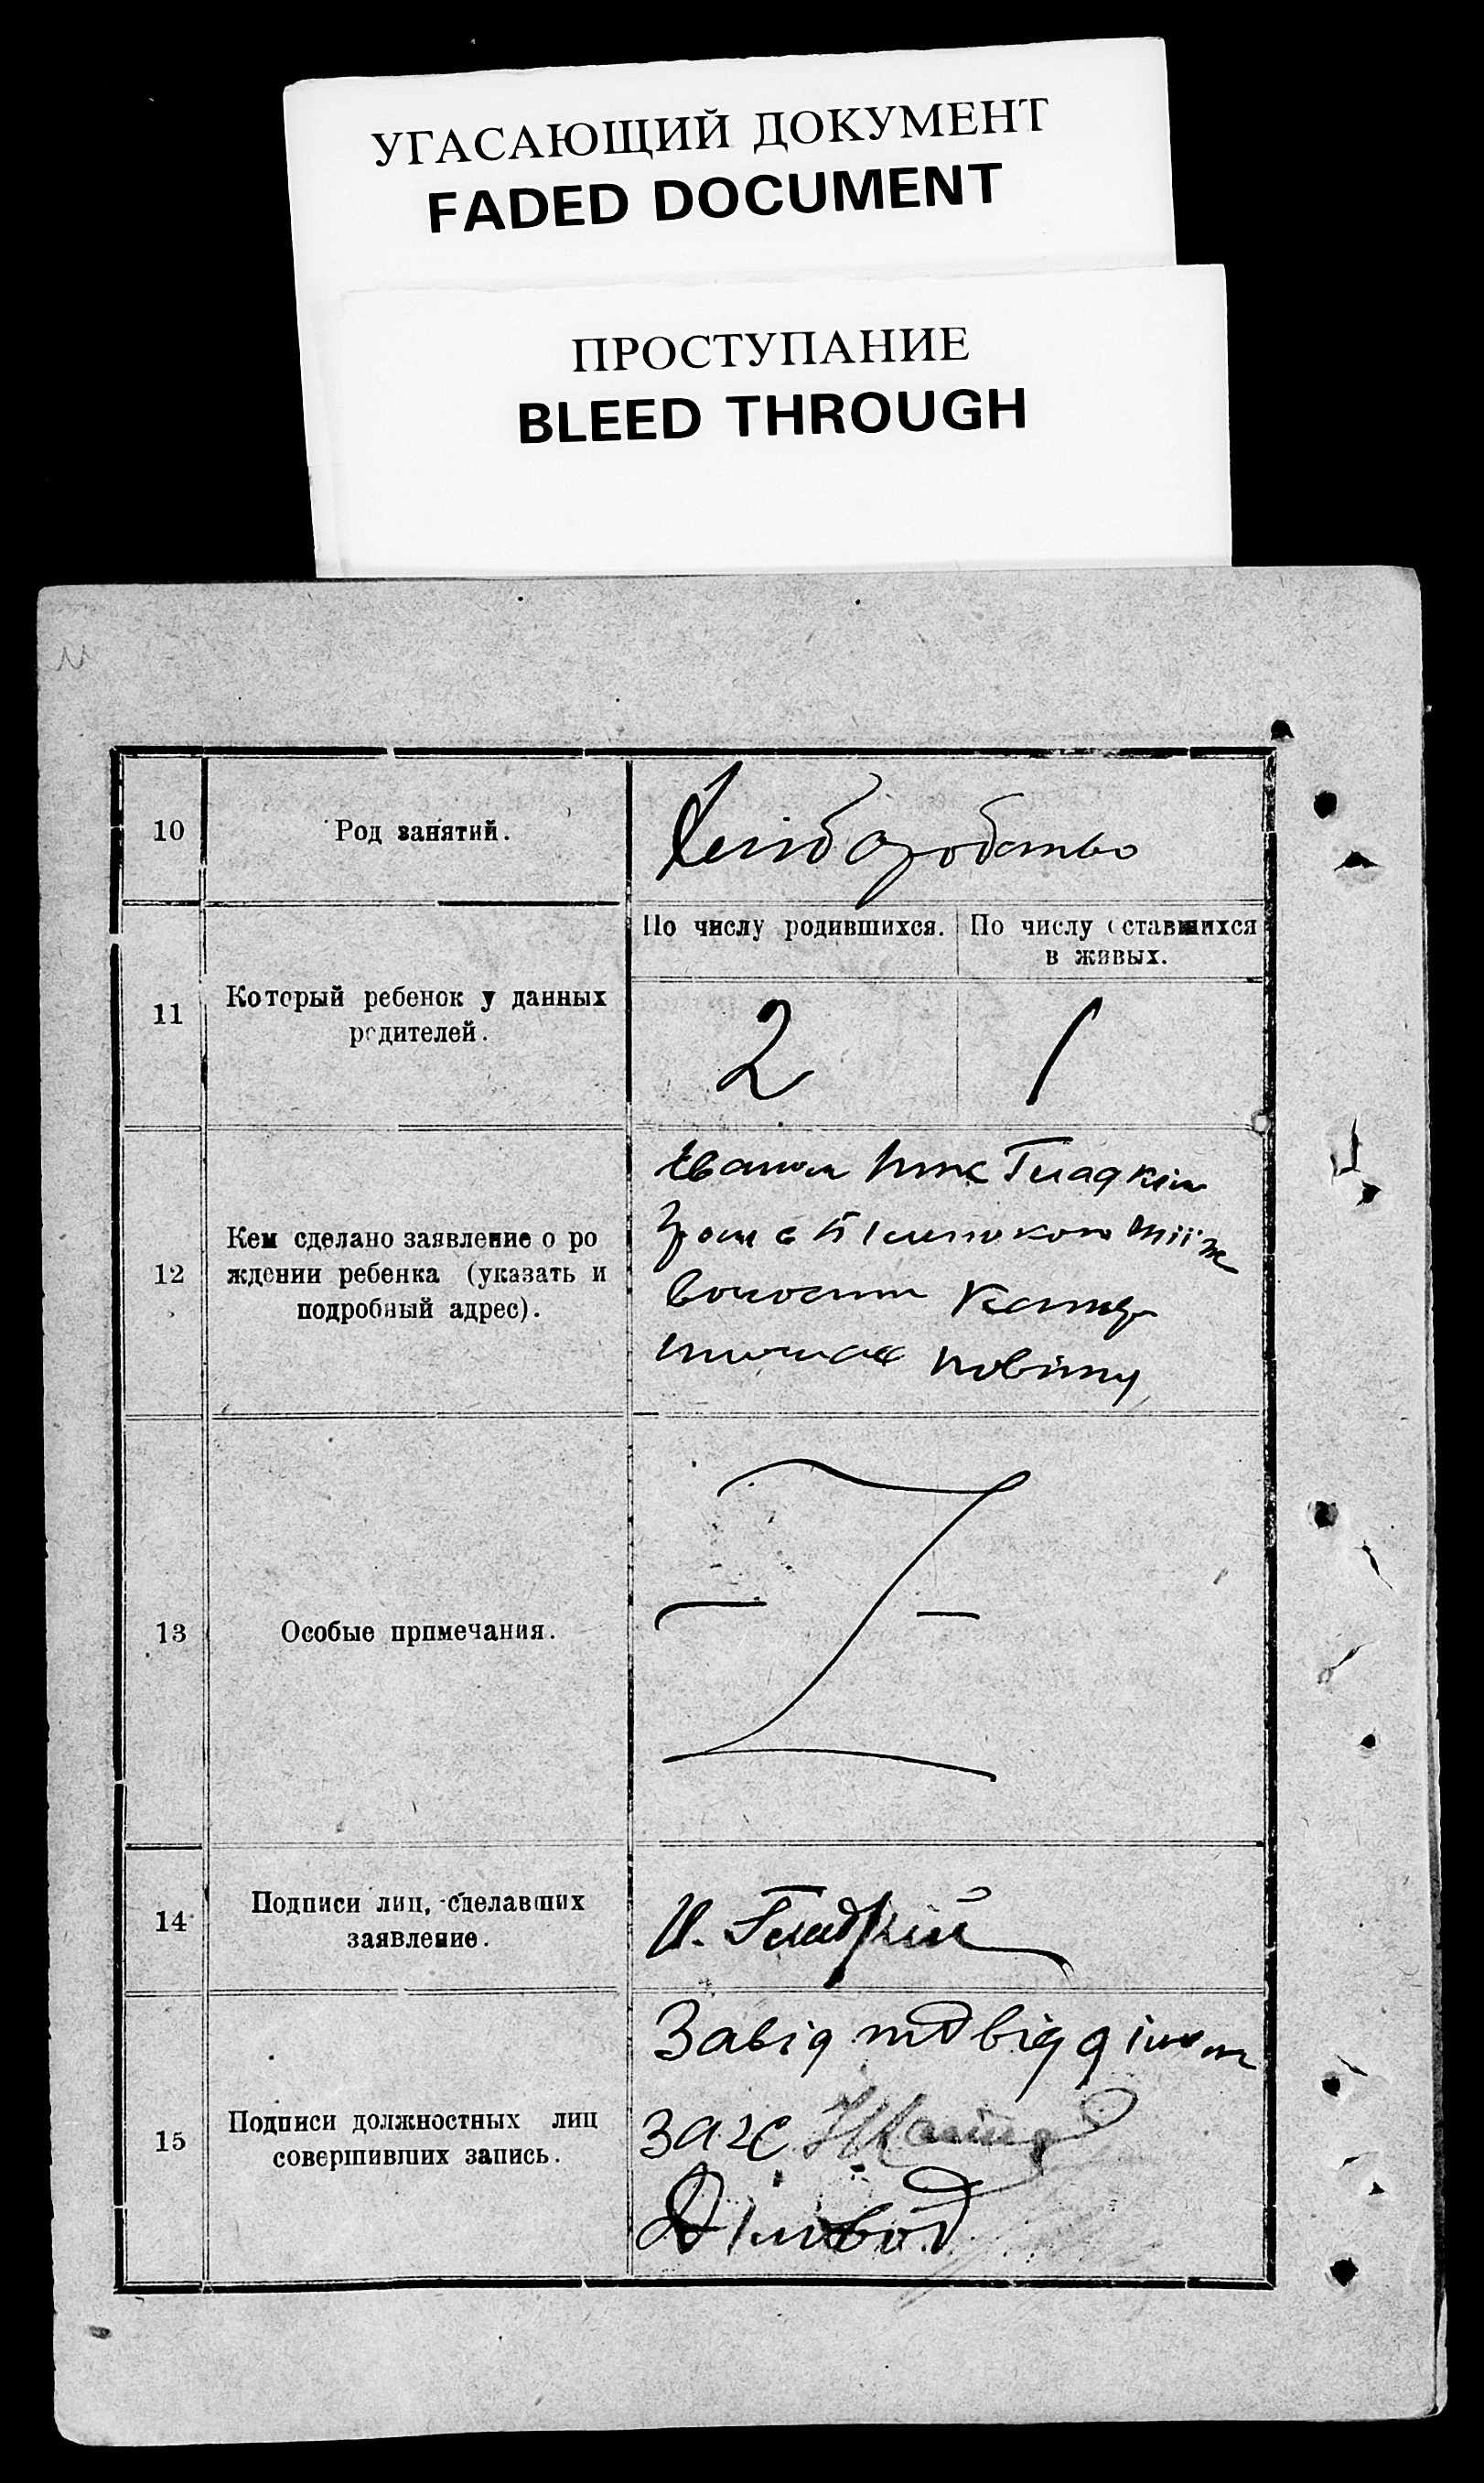 УГАСАЮЩИЙ ДОКУМЕНТ
FADED DOCUMENT
ПРОСТУПАНИЕ
BLEED THROUGH
10
Род занятий.
Хліборобство
11
Который ребенок у данных
родителей.
По числу родившихся.
По числу оставшихся
в живых.
2
1
12
Кем сделано заявление о ро
ждении ребенка (указать и
подробный адрес).
Гладкім
волости
повіту
13
Особые примечания.
14
Подписи лиц, сделавших
заявление.
И. Гладкий
15
Подписи должностных лиц
совершивших запись.
Завід підвідділом
загс
Діловод